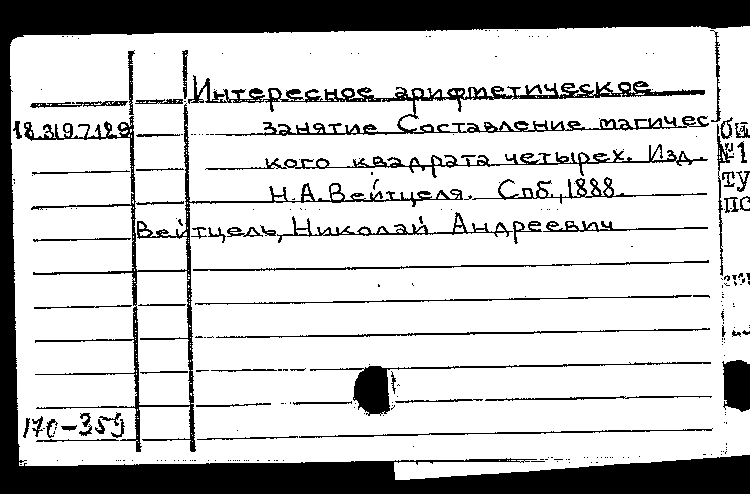 Интересное арифметическое
18.319.7.129 занятие Составление магичес-
кого квадрата четырех. Изд.
Н.А. Вейтцеля. Спб., 1888.
Вейтцель, Николай Андреевич
170-359
№1
ту